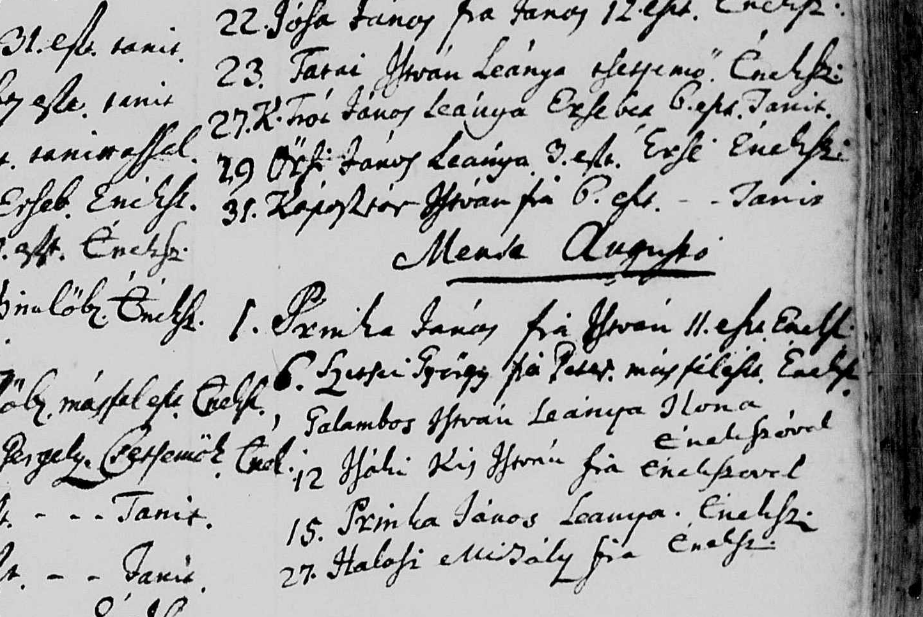 31. est. tanit.
est. tanit
tanitassal.
Erseb. Eneksz.
est. Éneksz.
Éneksz.
másfél est. Éneksz.
Gergely. Csetsemök. Énk.
- - - Tanit.
- - Tanit.
22. Jósa János fia János 12. est. Éneksz.
23. Tatai István Leánya tsetsemö. Éneksz:
27. K. Tót János Leánya Ersebet 6. est. Tanit.
29 Örsi János Leánya. 3. est. Ersé Éneksz:
31. Káposztás István fia 6. est. - - Tanit
Mense Augusto
1. Prinka János fia István 11. est. Eneksz.
6. Szetsei György fia Peter. másfélest. Éneksz.
Galambos István Leánya Ilona
Énekszóval
12 Isáki Kis István fia Énekszoval
15. Prinka János Leanya. Éneksz:
27. Halasi Mihály fia Éneksz: